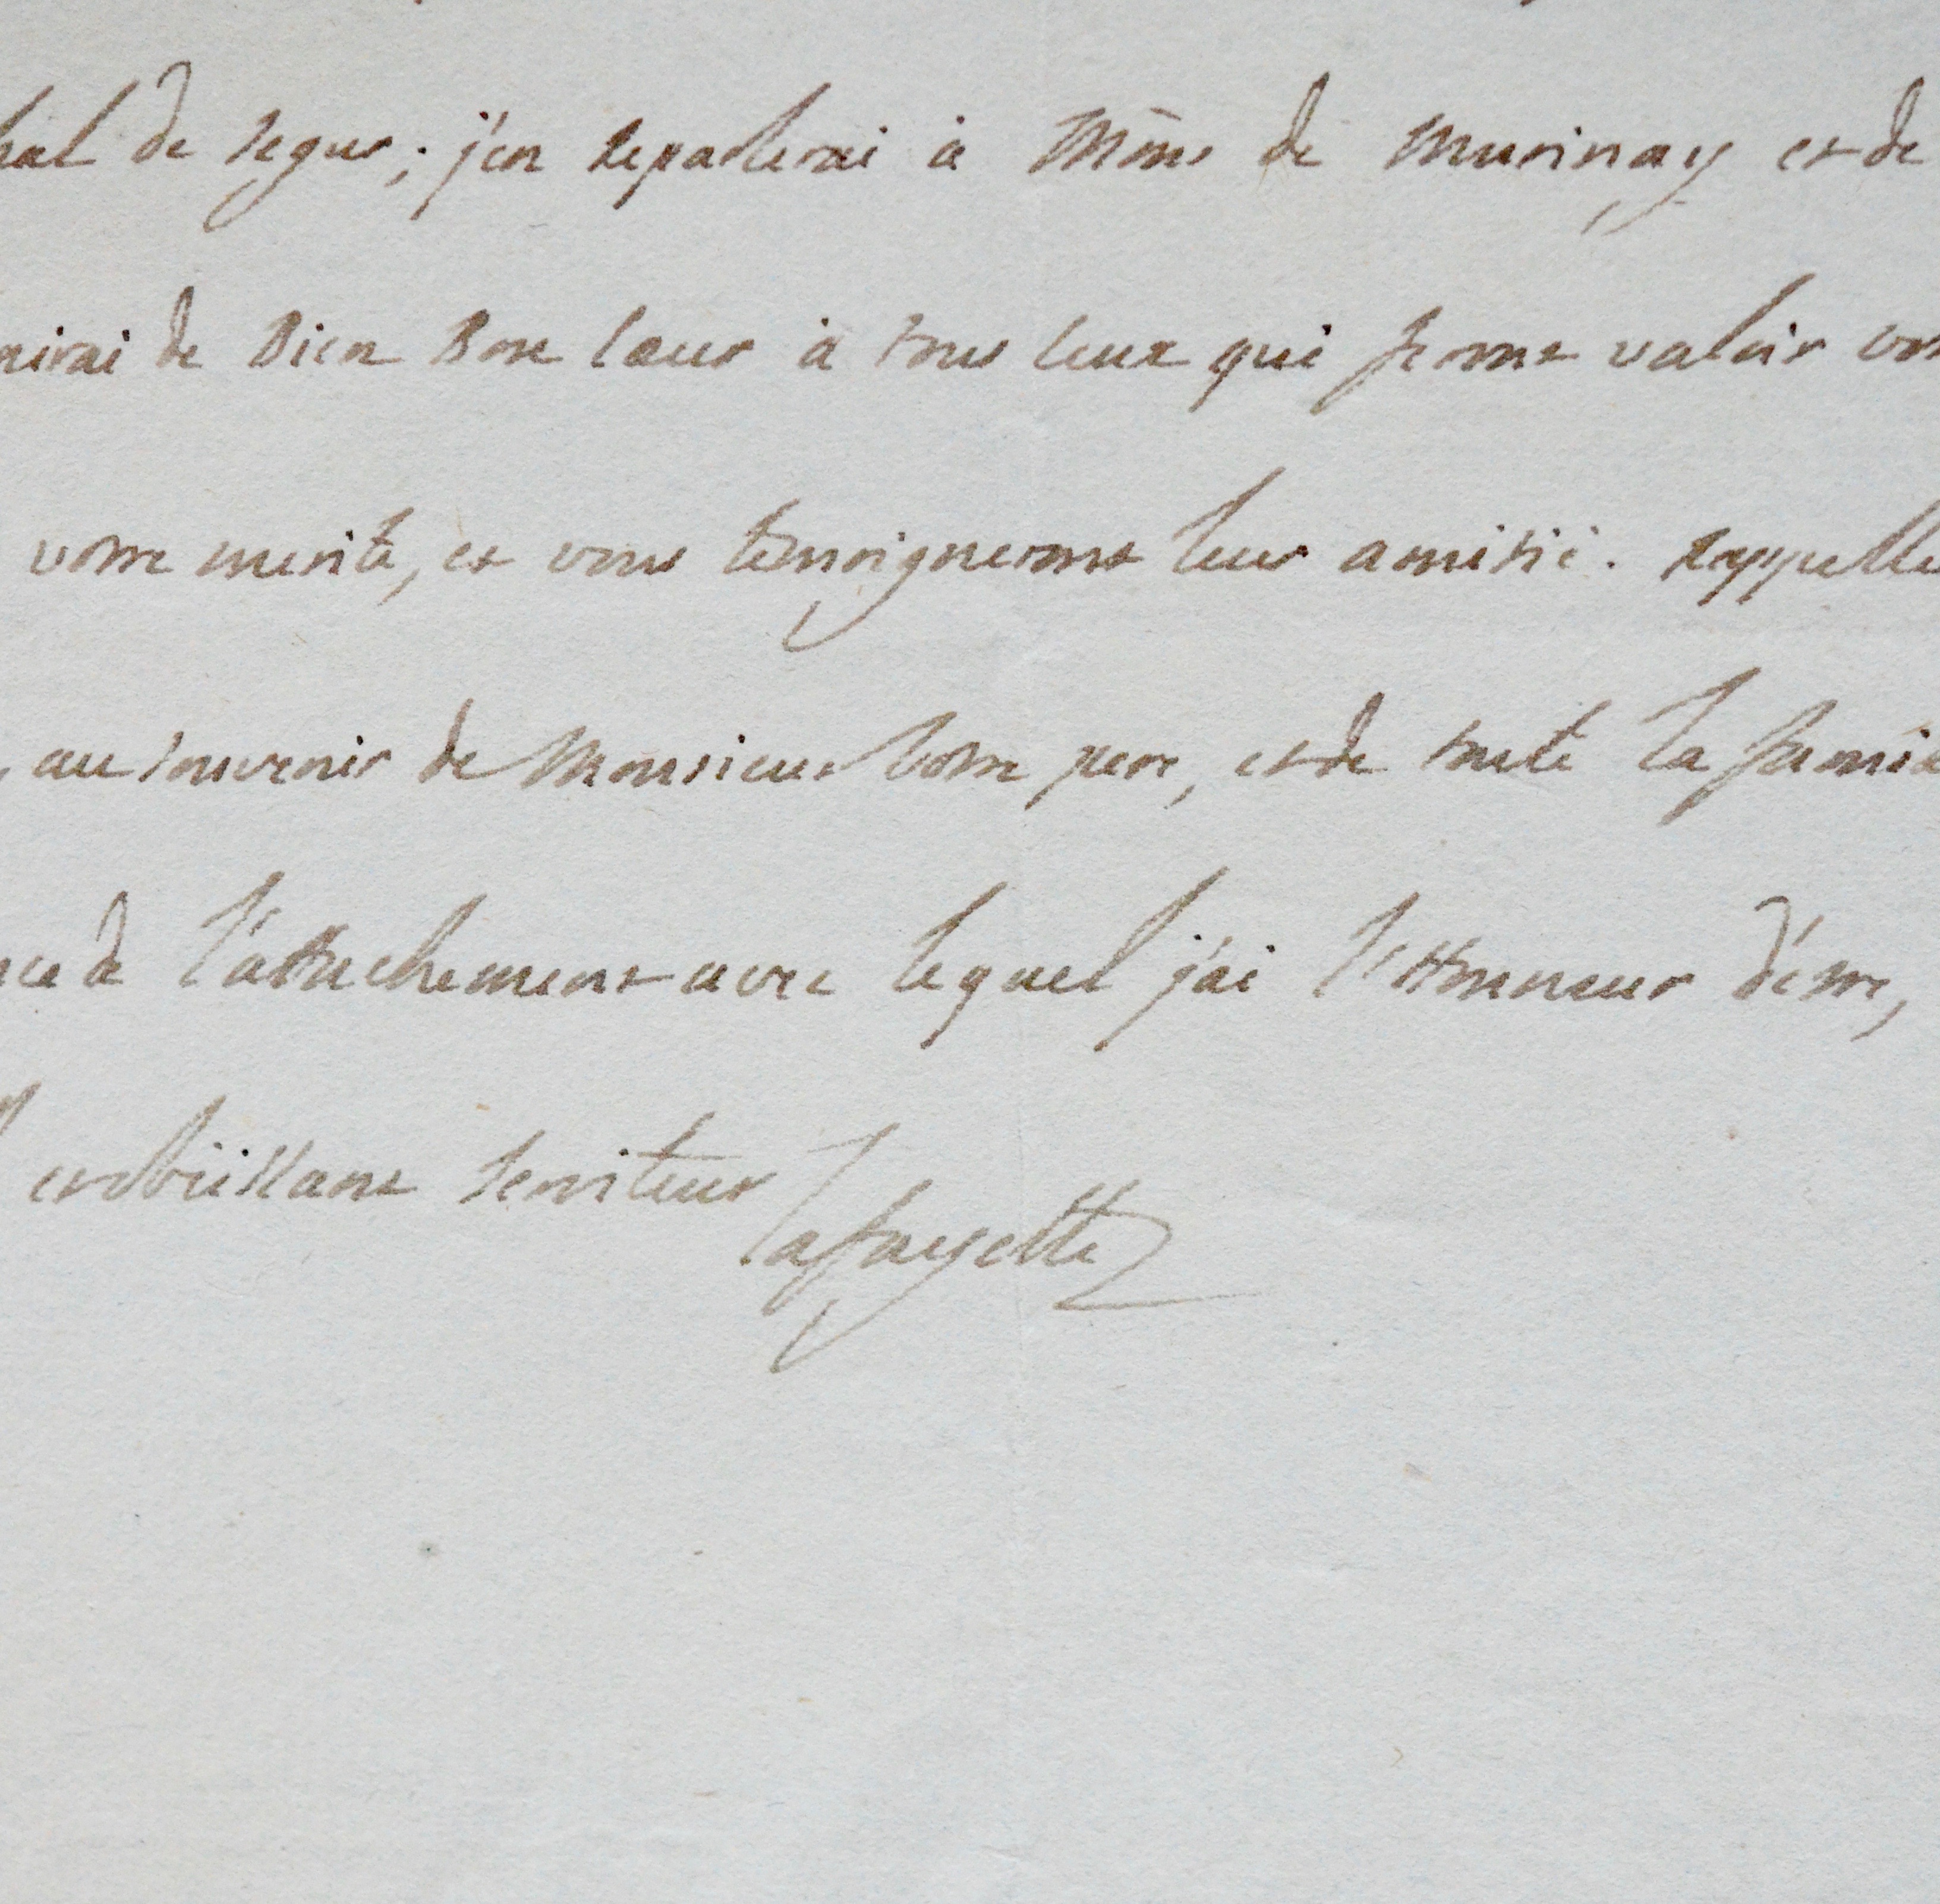 hal de Segur; j'en reparlerai à Mme de Murinay et de
nirai de Bien Bon Coeur à tous Ceux qui feront valoir vo
votre merite, et vous temoigneront leur amitié. rappelle
au Souvenir de Monsieur votre pere, et de toute la famil
nce de l'attachement avec lequel j'ai l'Honneur d'être,
et obéissant Serviteur
Lafayette